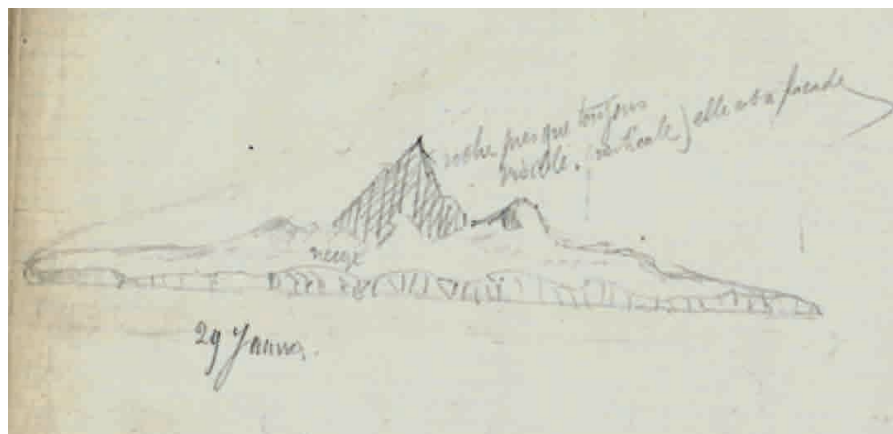 roche presque toujours
visible. (verticale) elle est a facade
neige
29 Janvier.